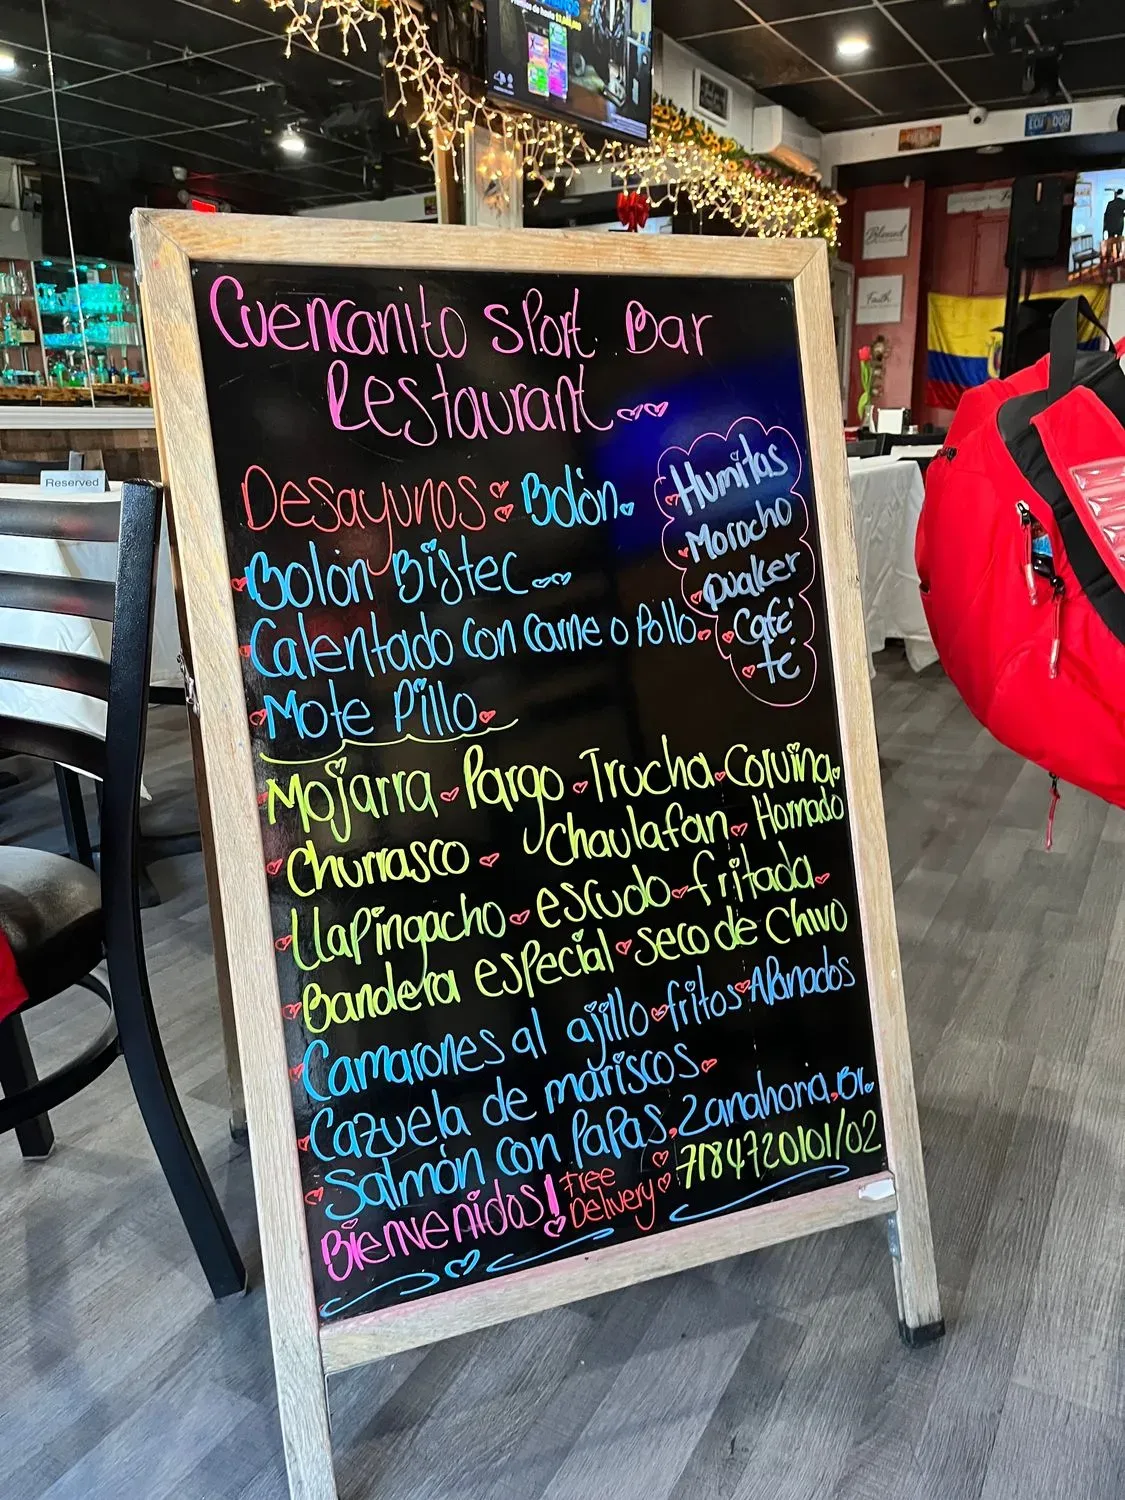 Cuencanito Sport Bar
Restaurant
Desayunos: Bolón
Bolón Bistec
Calentado con carne o Pollo
Mote Pillo
Humitas
Morocho
Quaker
Café
té
Mojarra Pargo Trucha Corvina
Churrasco Chaulafan Hornado
Llapingacho escudo fritada
Bandera especial seco de Chivo
Camarones al ajillo fritos Apanados
Cazuela de mariscos
Salmón con PaPas, Zanahoria, Br.
Bienvenidos! Free Delivery 7184720101/02
Reserved
Blessed
Faith